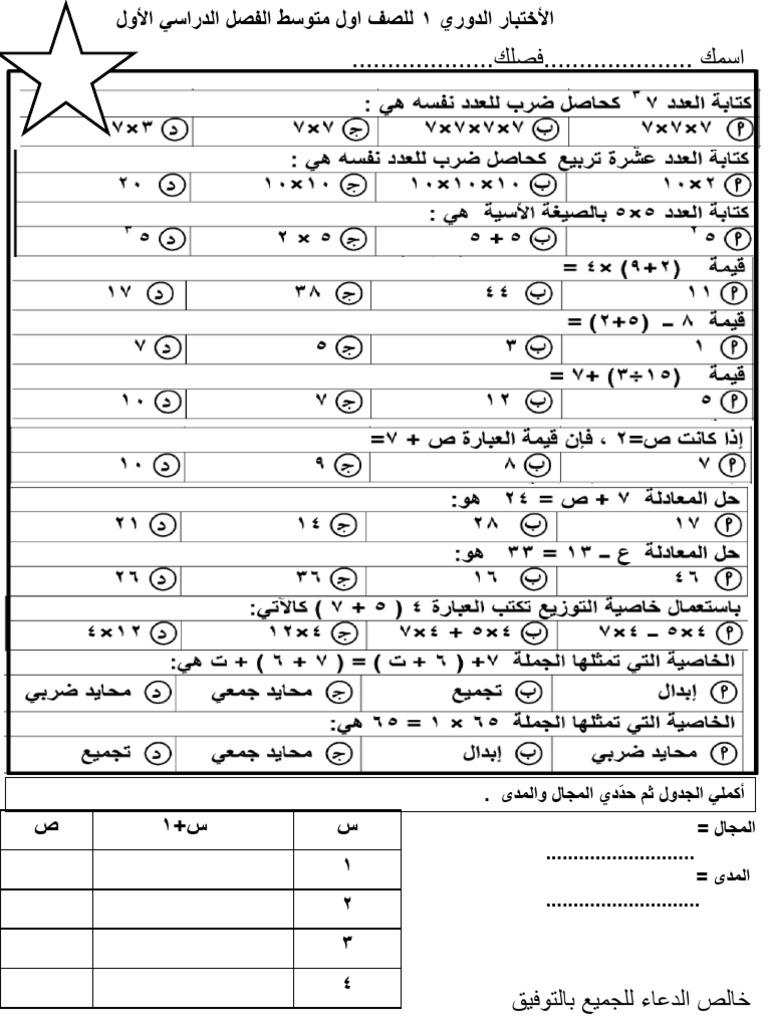 الأختبار الدوري ١ للصف اول متوسط الفصل الدراسي الأول
اسمك .....................فصلك.....................
كتابة العدد ٧ ٣ كحاصل ضرب للعدد نفسه هي :
أ ٧×٧×٧ ب ٧×٧×٧×٧ ج ٧×٧ د ٧×٣
كتابة العدد عشرة تربيع كحاصل ضرب للعدد نفسه هي :
أ ١٠×٢ ب ١٠×١٠×١٠ ج ١٠×١٠ د ٢٠
كتابة العدد ٥×٥ بالصيغة الأسية هي :
أ ٥ ٢ ب ٥ + ٥ ج ٥ × ٢ د ٥ ٣
قيمة (٢+٩) ×٤ =
أ ١١ ب ٤٤ ج ٣٨ د ١٧
قيمة ٨ – (٥+٢) =
أ ١ ب ٣ ج ٥ د ٧
قيمة (١٥÷٣) +٧ =
أ ٥ ب ١٢ ج ٧ د ١٠
إذا كانت ص=٢ ، فإن قيمة العبارة ص + ٧=
أ ٧ ب ٨ ج ٩ د ١٠
حل المعادلة ٧ + ص = ٢٤ هو:
أ ١٧ ب ٢٨ ج ١٤ د ٢١
حل المعادلة ع – ١٣ = ٣٣ هو:
أ ٤٦ ب ١٦ ج ٣٦ د ٢٦
باستعمال خاصية التوزيع تكتب العبارة ٤ ( ٥ + ٧ ) كالآتي:
أ ٤×٥ – ٤×٧ ب ٤×٥ + ٤×٧ ج ٤×١٢ د ١٢×٤
الخاصية التي تمثلها الجملة ٧+ ( ٦ + ت ) = ( ٧ + ٦ ) + ت هي:
أ إبدال ب تجميع ج محايد جمعي د محايد ضربي
الخاصية التي تمثلها الجملة ٦٥ × ١ = ٦٥ هي:
أ محايد ضربي ب إبدال ج محايد جمعي د تجميع
أكملي الجدول ثم حدَدي المجال والمدى .
المجال =
...........................
المدى =
............................
س س+١ ص
١
٢
٣
٤
خالص الدعاء للجميع بالتوفيق